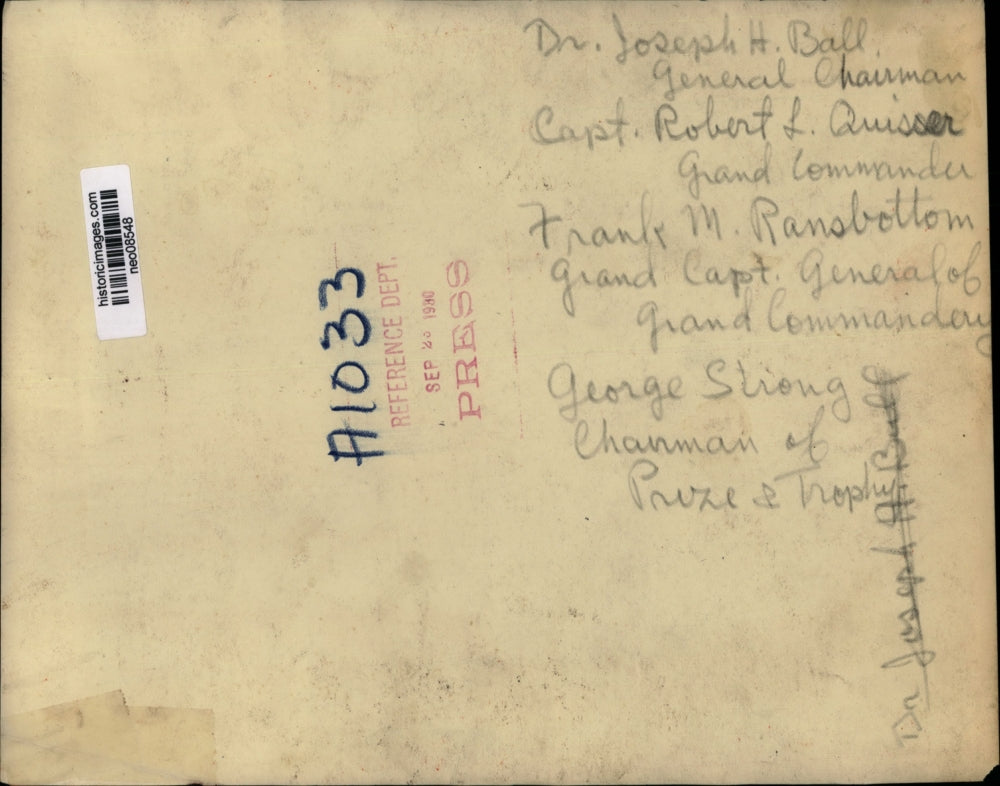 Dr. Joseph H. Ball,
General Chairman
Capt. Robert L. Quisser
Grand Commander
Frank M. Ransbottom
Grand Capt. General of
Grand Commandery
George Strong
Chairman of
Prize & Trophy
Dr Joseph H. Ball
A1033
REFERENCE DEPT.
SEP 1930
PRESS
historicimages.com
neo08548